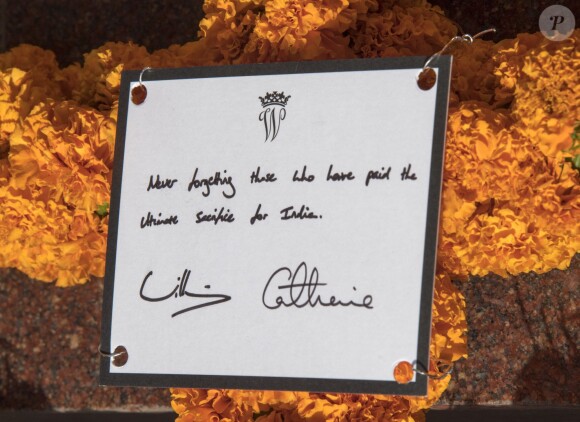 P
W
Never forgetting those who have paid the
Ultimate Sacrifice for India..
William
Catherine